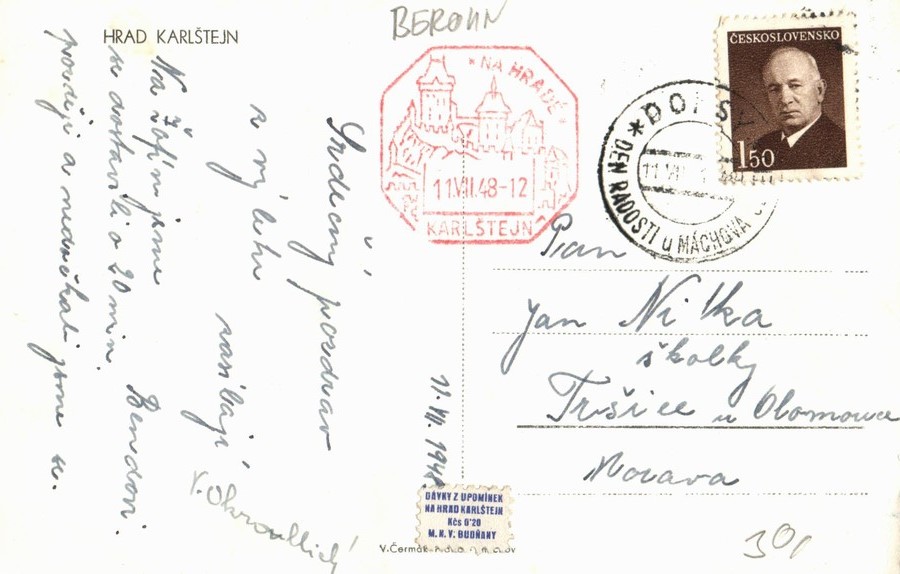 HRAD KARLŠTEJN
BEROUN
* NA HRADĚ *
11.VII.48-12
KARLŠTEJN
ČESKOSLOVENSKO
1.50
* DOKSY
11.VII
DEN RADOSTI u MÁCHOVA
Srdečný pozdrav
z výletu zasílají
Bendovi.
Na Žofii jsme
se dostavili o 20 min.
později a nedočkali jsme se.
11.VII.1948.
Pan
Jan Nitka
školky
Tršice u Olomouce
Morava
DÁVKY Z UPOMÍNEK
NA HRAD KARLŠTEJN
Kčs 0'20
M. N. V. BUDŇANY
V. Čermák